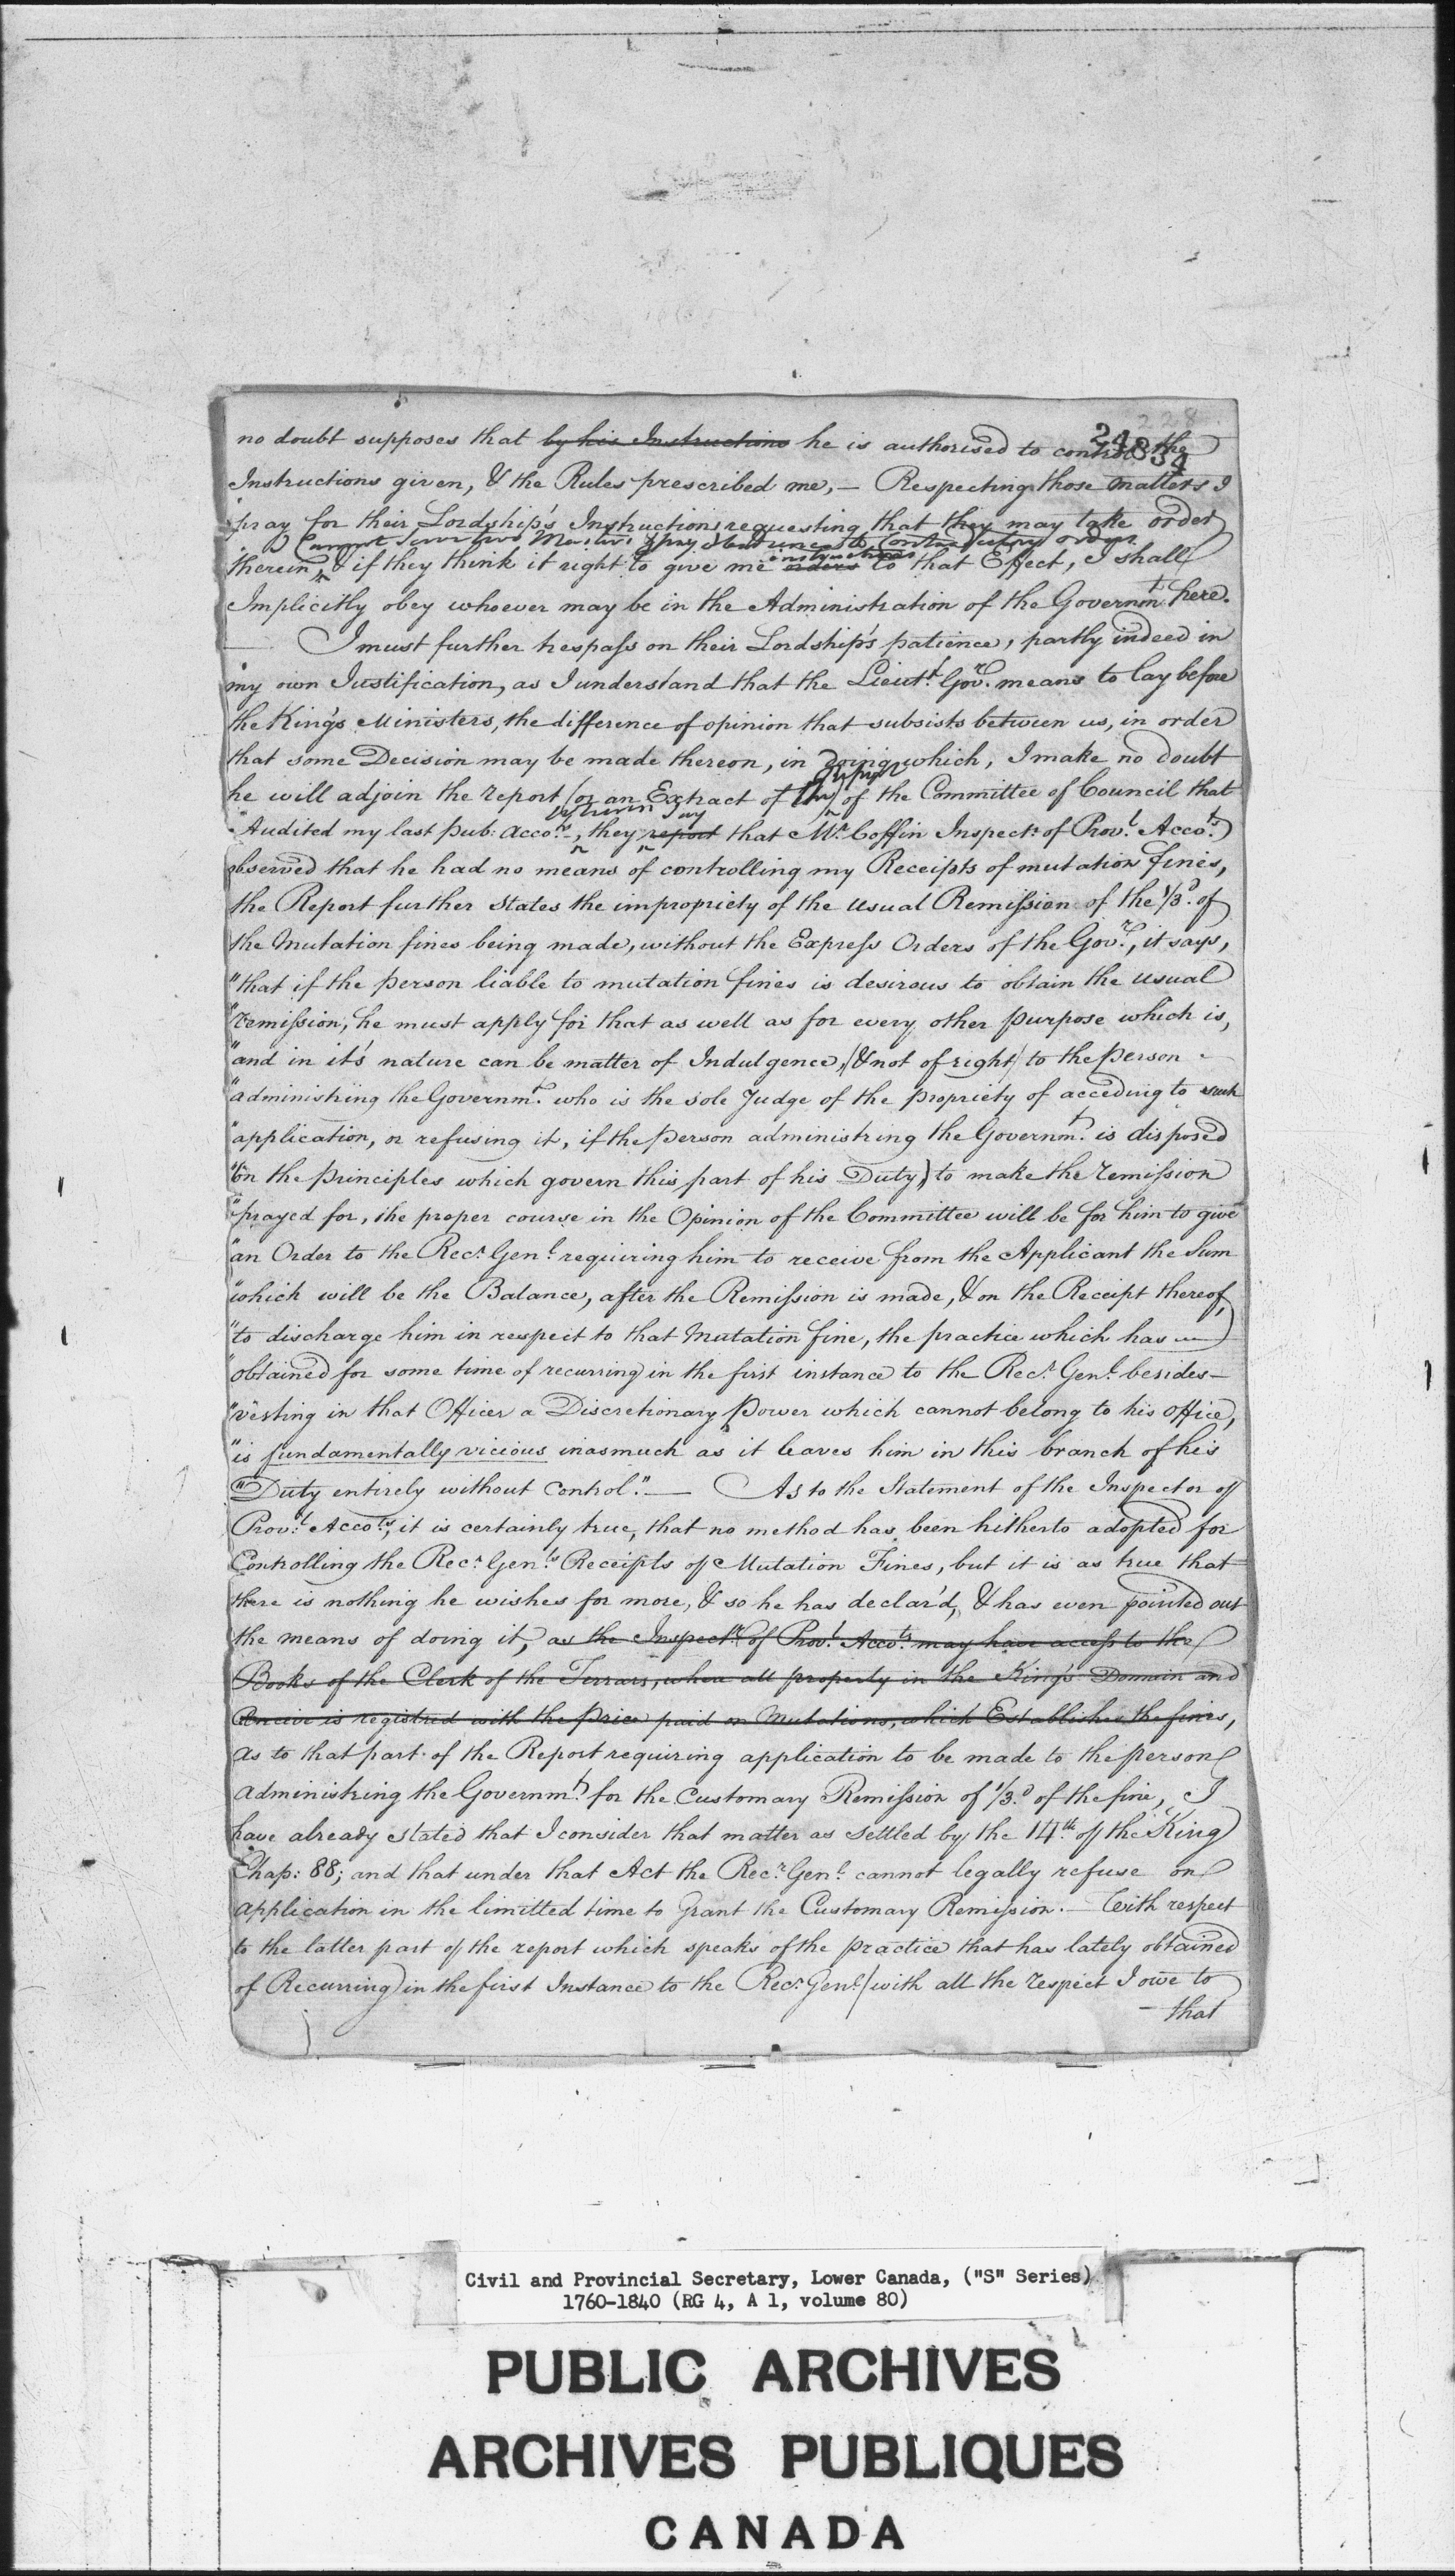 228
24834
no doubt supposes that by his Instructions he is authorised to control the
Instructions given, & the Rules prescribed me, — Respecting those matters I
pray for their Lordship's Instructions requesting that they may take order
I Cannot serve two Masters & pay obedience to Contradictory orders
instructions
therein, & if they think it right to give me orders to that Effect, I shall
Implicitly obey whoever may be in the Administration of the Governmt here.
I must further trespass on their Lordship's patience, partly indeed in
my own Justification, as I understand that the Lieutt. Govr. means to lay before
the King's Ministers, the difference of opinion that subsists between us, in order
that some Decision may be made thereon, in doing which, I make no doubt
he will adjoin the report (or an Extract of the) of the Committee of Council that
wherein say
Audited my last pub: Accots., they report that Mr. Coffin Inspectr. of Provl. Accots.
observed that he had no means of controlling my Receipts of mutation fines,
the Report further states the impropriety of the usual Remission of the 1/3d. of
the Mutation fines being made, without the Express Orders of the Govr., it says,
"that if the person liable to mutation fines is desirous to obtain the usual
"remission, he must apply for that as well as for every other purpose which is,
"and in it's nature can be matter of Indulgence, (& not of right) to the person
"administring the Governmt. who is the sole Judge of the propriety of acceding to such
"application, or refusing it, if the person administring the Governmt. is disposed
"(on the principles which govern this part of his Duty) to make the remission
"prayed for, the proper course in the Opinion of the Committee will be for him to give
"an Order to the Recr. Genl. requiring him to receive from the Applicant the Sum
"which will be the Balance, after the Remission is made, & on the Receipt thereof,
"to discharge him in respect to that Mutation fine, the practice which has —
"obtained for some time of recurring in the first instance to the Recr. Genl. besides —
"vesting in that Officer a Discretionary power which cannot belong to his office,
"is fundamentally vicious inasmuch as it leaves him in this branch of his
"Duty entirely without Control." — As to the Statement of the Inspector of
Provl. Accots., it is certainly true, that no method has been hitherto adopted for
Controlling the Recr. Genl's Receipts of Mutation Fines, but it is as true that
there is nothing he wishes for more, & so he has declar'd, & has even pointed out
the means of doing it, as the Inspectr. of Provl. Accots. may have access to the
Books of the Clerk of the Terrars, where all property in the King's Domain and
Censive is registred with the price paid on Mutations, which Establishes the fines,
as to that part of the Report requiring application to be made to the person
administring the Governmt. for the Customary Remission of 1/3d. of the fine, I
have already stated that I consider that matter as settled by the 14th. of the King
Chap: 88; and that under that Act the Recr. Genl. cannot legally refuse on
application in the limitted time to Grant the Customary Remission. — With respect
to the latter part of the report which speaks of the practice that has lately obtained
of Recurring in the first Instance to the Recr. Genl. (with all the respect I owe to
— that
Civil and Provincial Secretary, Lower Canada, ("S" Series)
1760-1840 (RG 4, A 1, volume 80)
PUBLIC ARCHIVES
ARCHIVES PUBLIQUES
CANADA